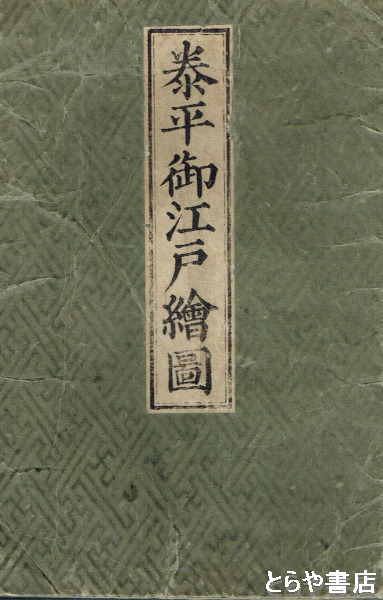 泰平御江戸繪圖
とらや書店